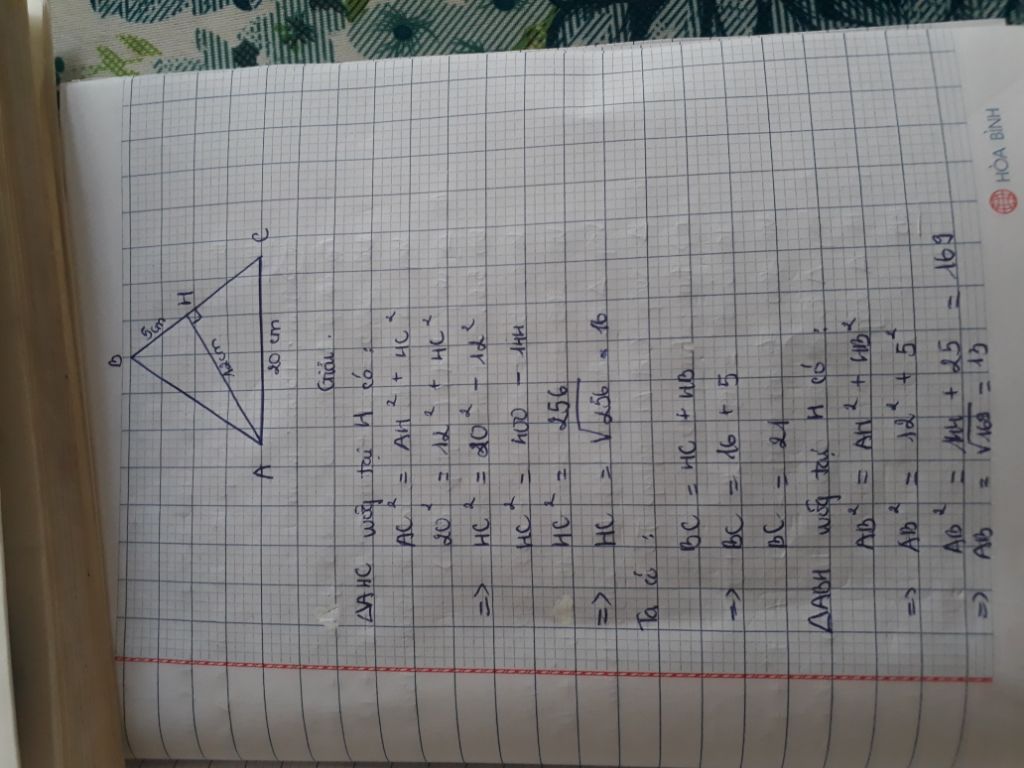 B
5cm
H
12cm
A
C
20 cm
Giải.
ΔAHC vuông tại H có :
AC² = AH² + HC²
20² = 12² + HC²
=> HC² = 20² - 12²
HC² = 400 - 144
HC² = 256
=> HC = √256 = 16
Ta có :
BC = HC + HB
=> BC = 16 + 5
BC = 21
ΔABH vuông tại H có :
AB² = AH² + HB²
=> AB² = 12² + 5²
AB² = 144 + 25 = 169
=> AB = √169 = 13
HÒA BÌNH